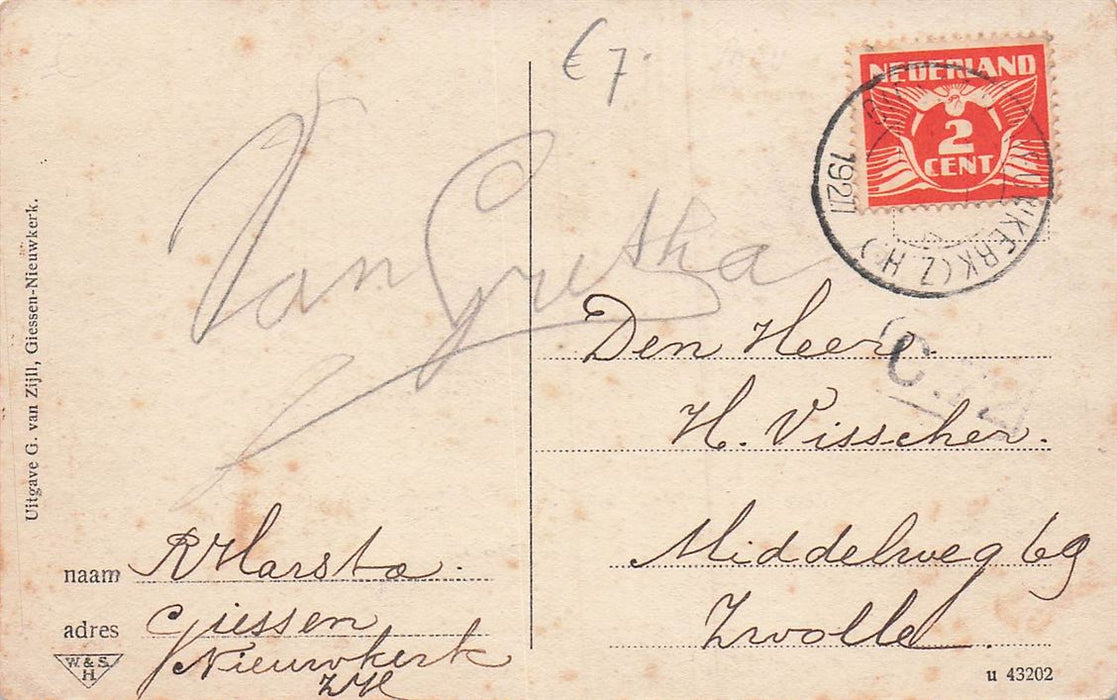 € 7.
NEDERLAND
2
CENT
1927
KERK (Z.H.)
Uitgave G. van Zijll, Giessen-Nieuwkerk.
Van Gretha
Den Heer
H. Visscher.
Middelweg 69
Zwolle
naam R Harsta.
adres Giessen
Nieuwkerk
ZH
W. & S.
H.
u 43202